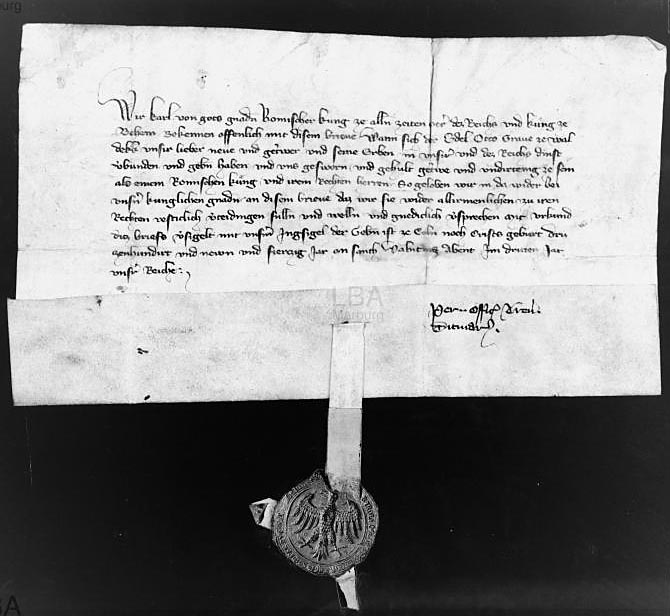 Wir karl von gots gnadn Romischer kung ze alln zeiten merer des Reichs und kung ze
Behem Bekennen offenlich mit disem brieue Wann sich der Edel Otto Graue ze wal
dekk unsir lieber neue und getrwer und seine Erben in unsir und des Reichs dinst
vbunden und gebn haben und uns gesworn und gehult getrwe und undirtenig ze sein
als einem Romischen kung und irem Rechten herren So geloben wir in da wider bei
unsn kunglichen gnadn an disem brieue daz wir sie wider allirmenlichen zu iren
Rechten vesticlich vteidingen sulln und welln und gnediclich vsprechen mit urkund
dis briefs vsigelt mit unsm Ingsigel der gebn ist ze Coln noch Crists geburt dru
zenhundirt und newn und fierczig Jar an sand Valnteins abent Im dritten Jar
unsir Reiche
LBA
Marburg